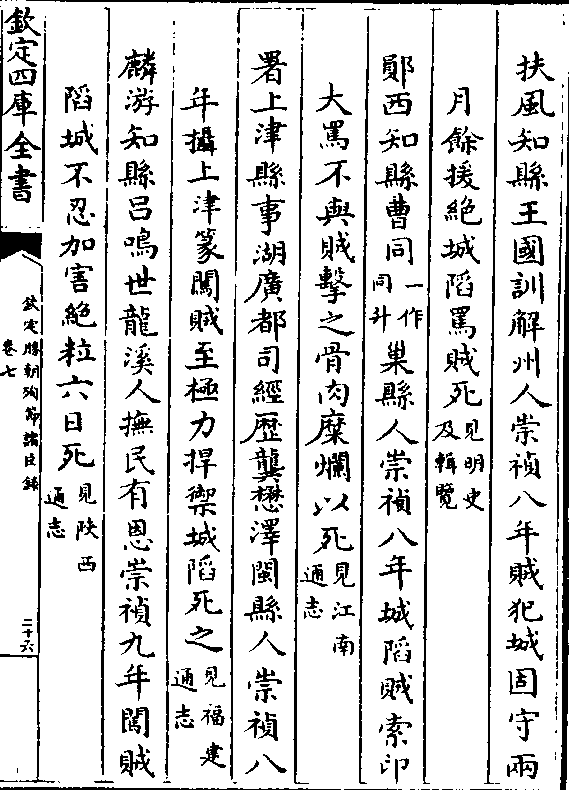 扶風知縣王國訓解州人崇禎八年賊犯城固守兩
月餘援絶城䧟罵賊死見明史及輯覽
鄖西知縣曹同一作同升巢縣人崇禎八年城䧟賊索印
大罵不與賊擊之骨肉糜爛以死見江南通志
署上津縣事湖廣都司經歴龔懋澤閩縣人崇禎八
年攝上津篆闖賊至極力捍禦城䧟死之見福建通志
麟游知縣吕鳴世龍溪人撫民有恩崇禎九年闖賊
䧟城不忍加害絶粒六日死見陜西通志
欽定四庫全書
欽定勝朝殉節諸臣録
卷七
二十六